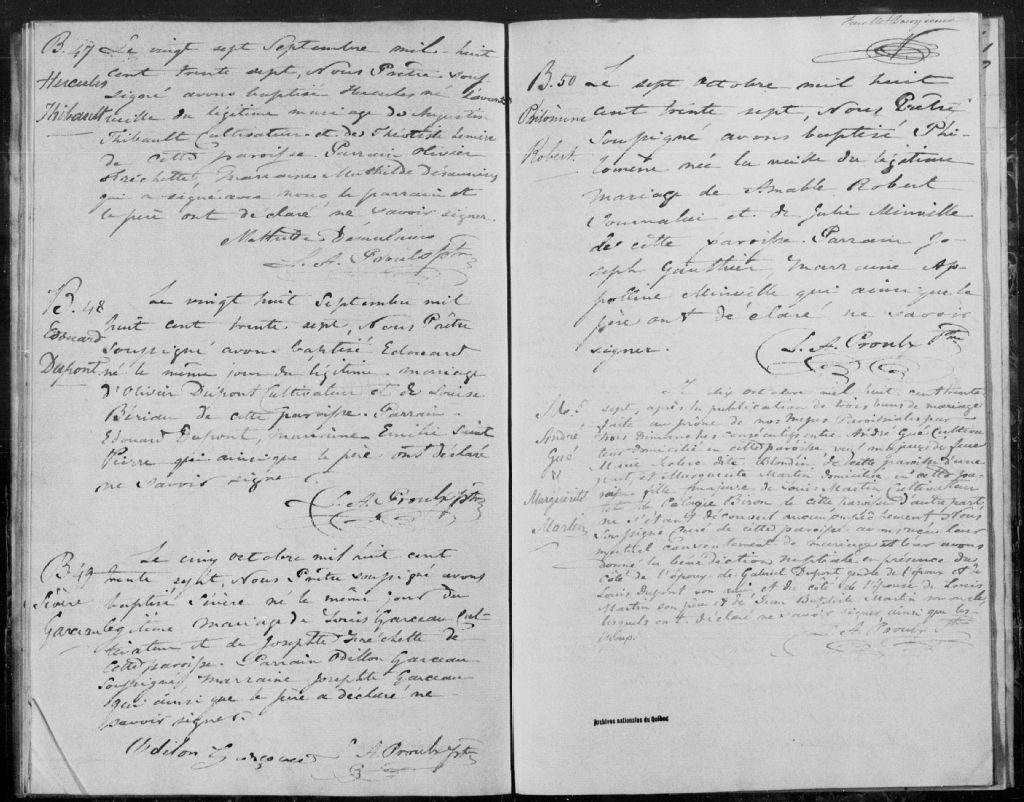 B. 47 Le vingt sept Septembre mil huit
Hercules cent trente sept, Nous Prêtre sous
signé avons baptisé Hercules né l'avant
Thibault veille du légitime mariage de Augustin
Thibault Cultivateur et de
de cette paroisse. Parrain Olivier
Fréchette, Marraine Mathilde
qui a signé avec nous le parrain et
le père ont déclaré ne savoir signer.
L. A. Proulx Ptre
B. 48 Le vingt huit Septembre mil
huit cent trente sept, Nous Prêtre
Edouard soussigné avons baptisé Edouard
Dupont né le même jour du légitime mariage
d'Olivier Dupont Cultivateur et de Louise
de cette paroisse. Parrain
Edouard Dupont, marraine Emilie Saint
Pierre qui ainsi que le père ont déclaré
ne savoir signer.
L. A. Proulx Ptre
Le cinq octobre mil huit cent
B. 49 trente sept, Nous Prêtre soussigné avons
Sévère baptisé Sévère né le même jour du
Garceau légitime mariage de Louis Garceau Cul-
tivateur et de Josephte Fréchette de
cette paroisse. Parrain Odillon Garceau
soussigné, marraine Josephte Garceau
qui ainsi que le père a déclaré ne
savoir signer.
Odilon L. A. Proulx Ptre
B. 50 Le sept octobre mil huit
Philomène cent trente sept, Nous Prêtre
soussigné avons baptisé Phi-
Robert lomène née la veille du légitime
mariage de Amable Robert
Journalier et de Julie Minville
de cette paroisse. Parrain Jo-
seph Gauthier, Marraine Ap-
polline Minville qui ainsi que le
père ont déclaré ne savoir
signer. L. A. Proulx Ptre
Le dix octobre mil huit cent trente
M. 5 sept, après la publication de trois bans de mariage
faite au prône de nos messes Paroissiales par
André trois Dimanches consécutifs entre André Gué Cultiva
Gué teur domicilié en cette paroisse veuf majeur de feue
& Marie dite Blondin de cette paroisse d'une
part, et Marguerite Martin domiciliée en cette pa-
Marguerite roisse fille majeure de Louis Martin Cultivateur
et de Pélagie Biron de cette paroisse d'autre part,
Martin ne s'étant découvert aucun empêchement Nous
soussigné Curé de cette paroisse avons reçu leur
mutuel consentement de mariage et leur avons
donné la bénédiction nuptiale en présence du
côté de l'époux de Gabriel Dupont gendre de l'époux et de
Louis Dupont son ami, et du côté de l'épouse de Louis
Martin son père et de Jean Baptiste Martin son oncle,
lesquels ont déclaré ne savoir signer ainsi que les
époux. L. A. Proulx Ptre
Archives nationales du Québec